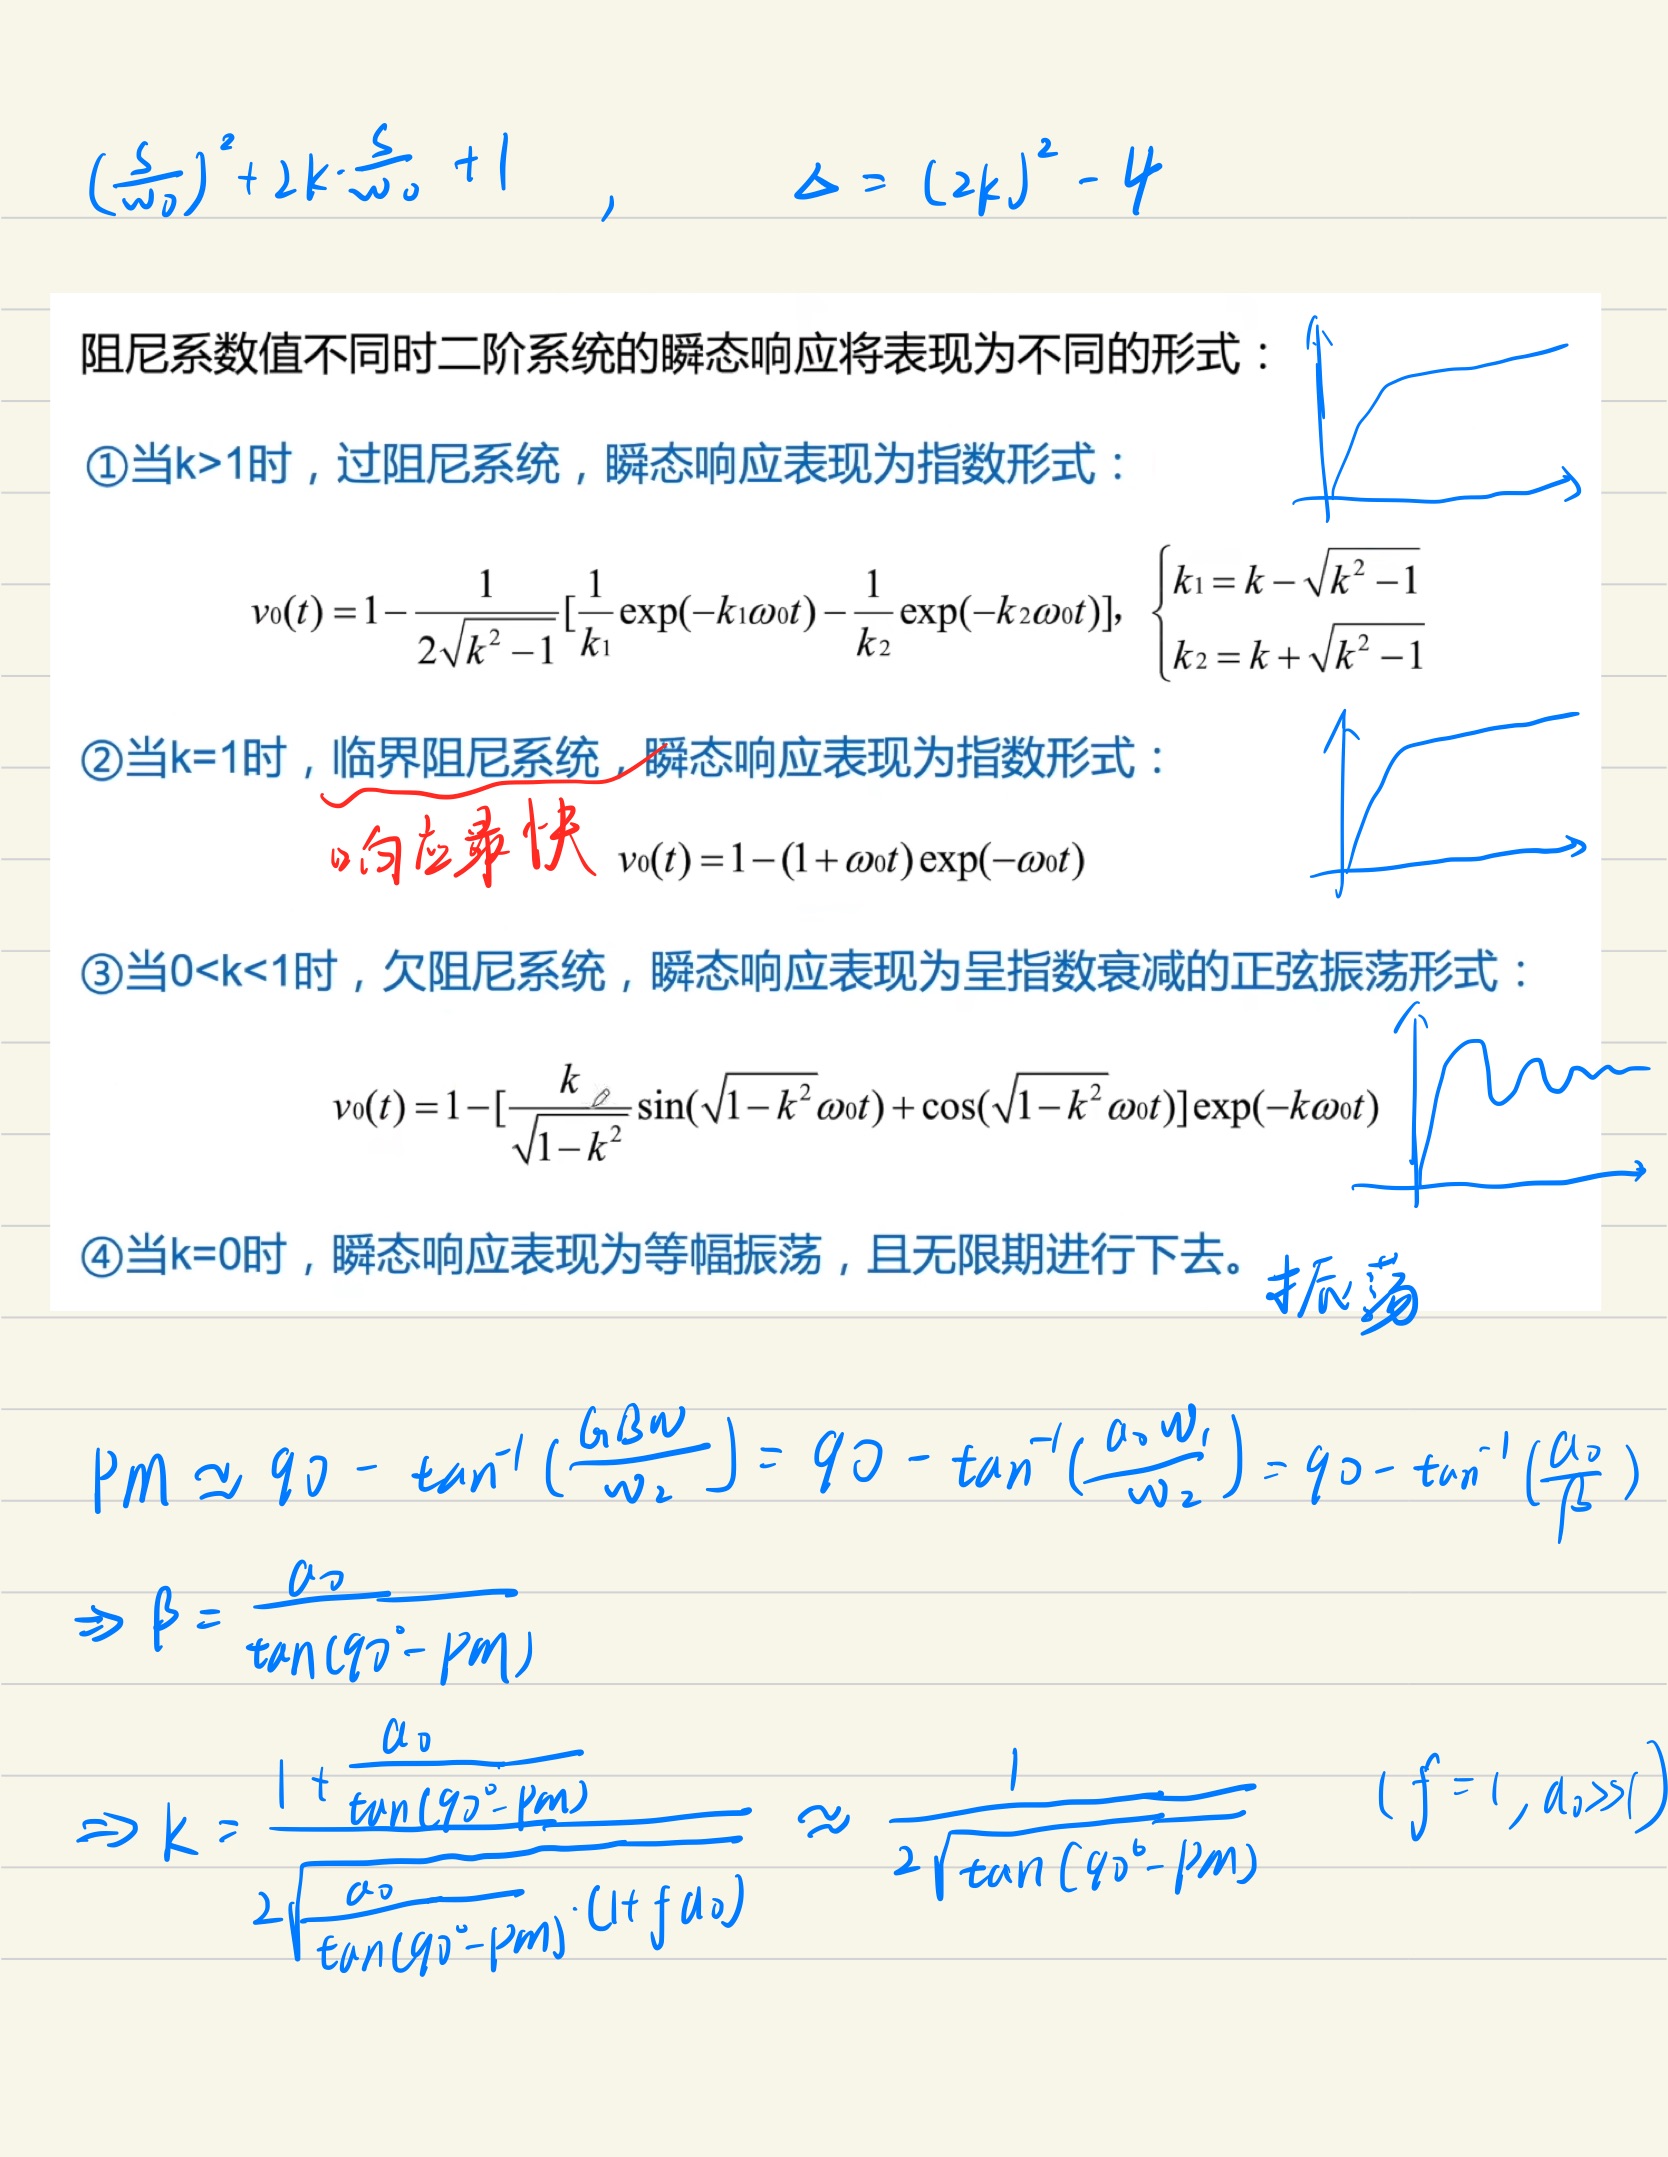 (s/ω0)² + 2k·s/ω0 + 1 , Δ = (2k)² - 4
阻尼系数值不同时二阶系统的瞬态响应将表现为不同的形式：
①当k>1时，过阻尼系统，瞬态响应表现为指数形式：
v0(t) = 1 − 1/(2√(k² − 1)) [1/k1 exp(−k1ω0t) − 1/k2 exp(−k2ω0t)], { k1 = k − √(k² − 1)
k2 = k + √(k² − 1)
②当k=1时，临界阻尼系统，瞬态响应表现为指数形式：
响应最快
v0(t) = 1 − (1 + ω0t) exp(−ω0t)
③当0<k<1时，欠阻尼系统，瞬态响应表现为呈指数衰减的正弦振荡形式：
v0(t) = 1 − [k/√(1 − k²) sin(√(1 − k²) ω0t) + cos(√(1 − k²) ω0t)] exp(−kω0t)
④当k=0时，瞬态响应表现为等幅振荡，且无限期进行下去。
振荡
PM ≈ 90 - tan⁻¹(GBW/ω2) = 90 - tan⁻¹(a0ω1/ω2) = 90 - tan⁻¹(a0/β)
⇒ β = a0/tan(90° - PM)
⇒ k = (1 + a0/tan(90° - PM)) / (2√(a0/tan(90° - PM) · (1 + f a0))) ≈ 1/(2√tan(90° - PM)) (f = 1, a0 >> 1)